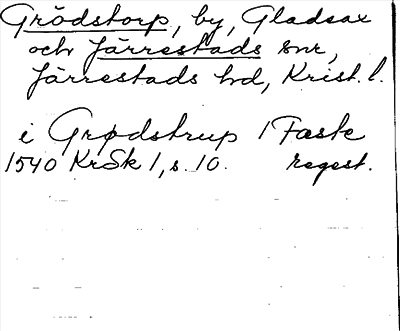 Grödstorp, by, Gladsax
och Järrestads snr,
Järrestads hd, Krist. l.
i Grødstrup 1 Fæste
1540 KrSk 1, s. 10. regest.